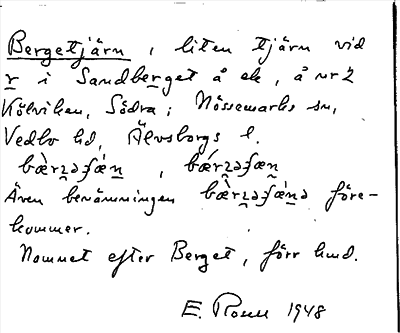 Bergetjärn, liten tjärn vid
r i Sandberget å ek, å nr 2
Kölviken, Södra; Nössemarks sn,
Vedbo hd, Älvsborgs l.
Även benämningen före-
kommer.
Namnet efter Berget, förr hmd.
E. Rosell 1948